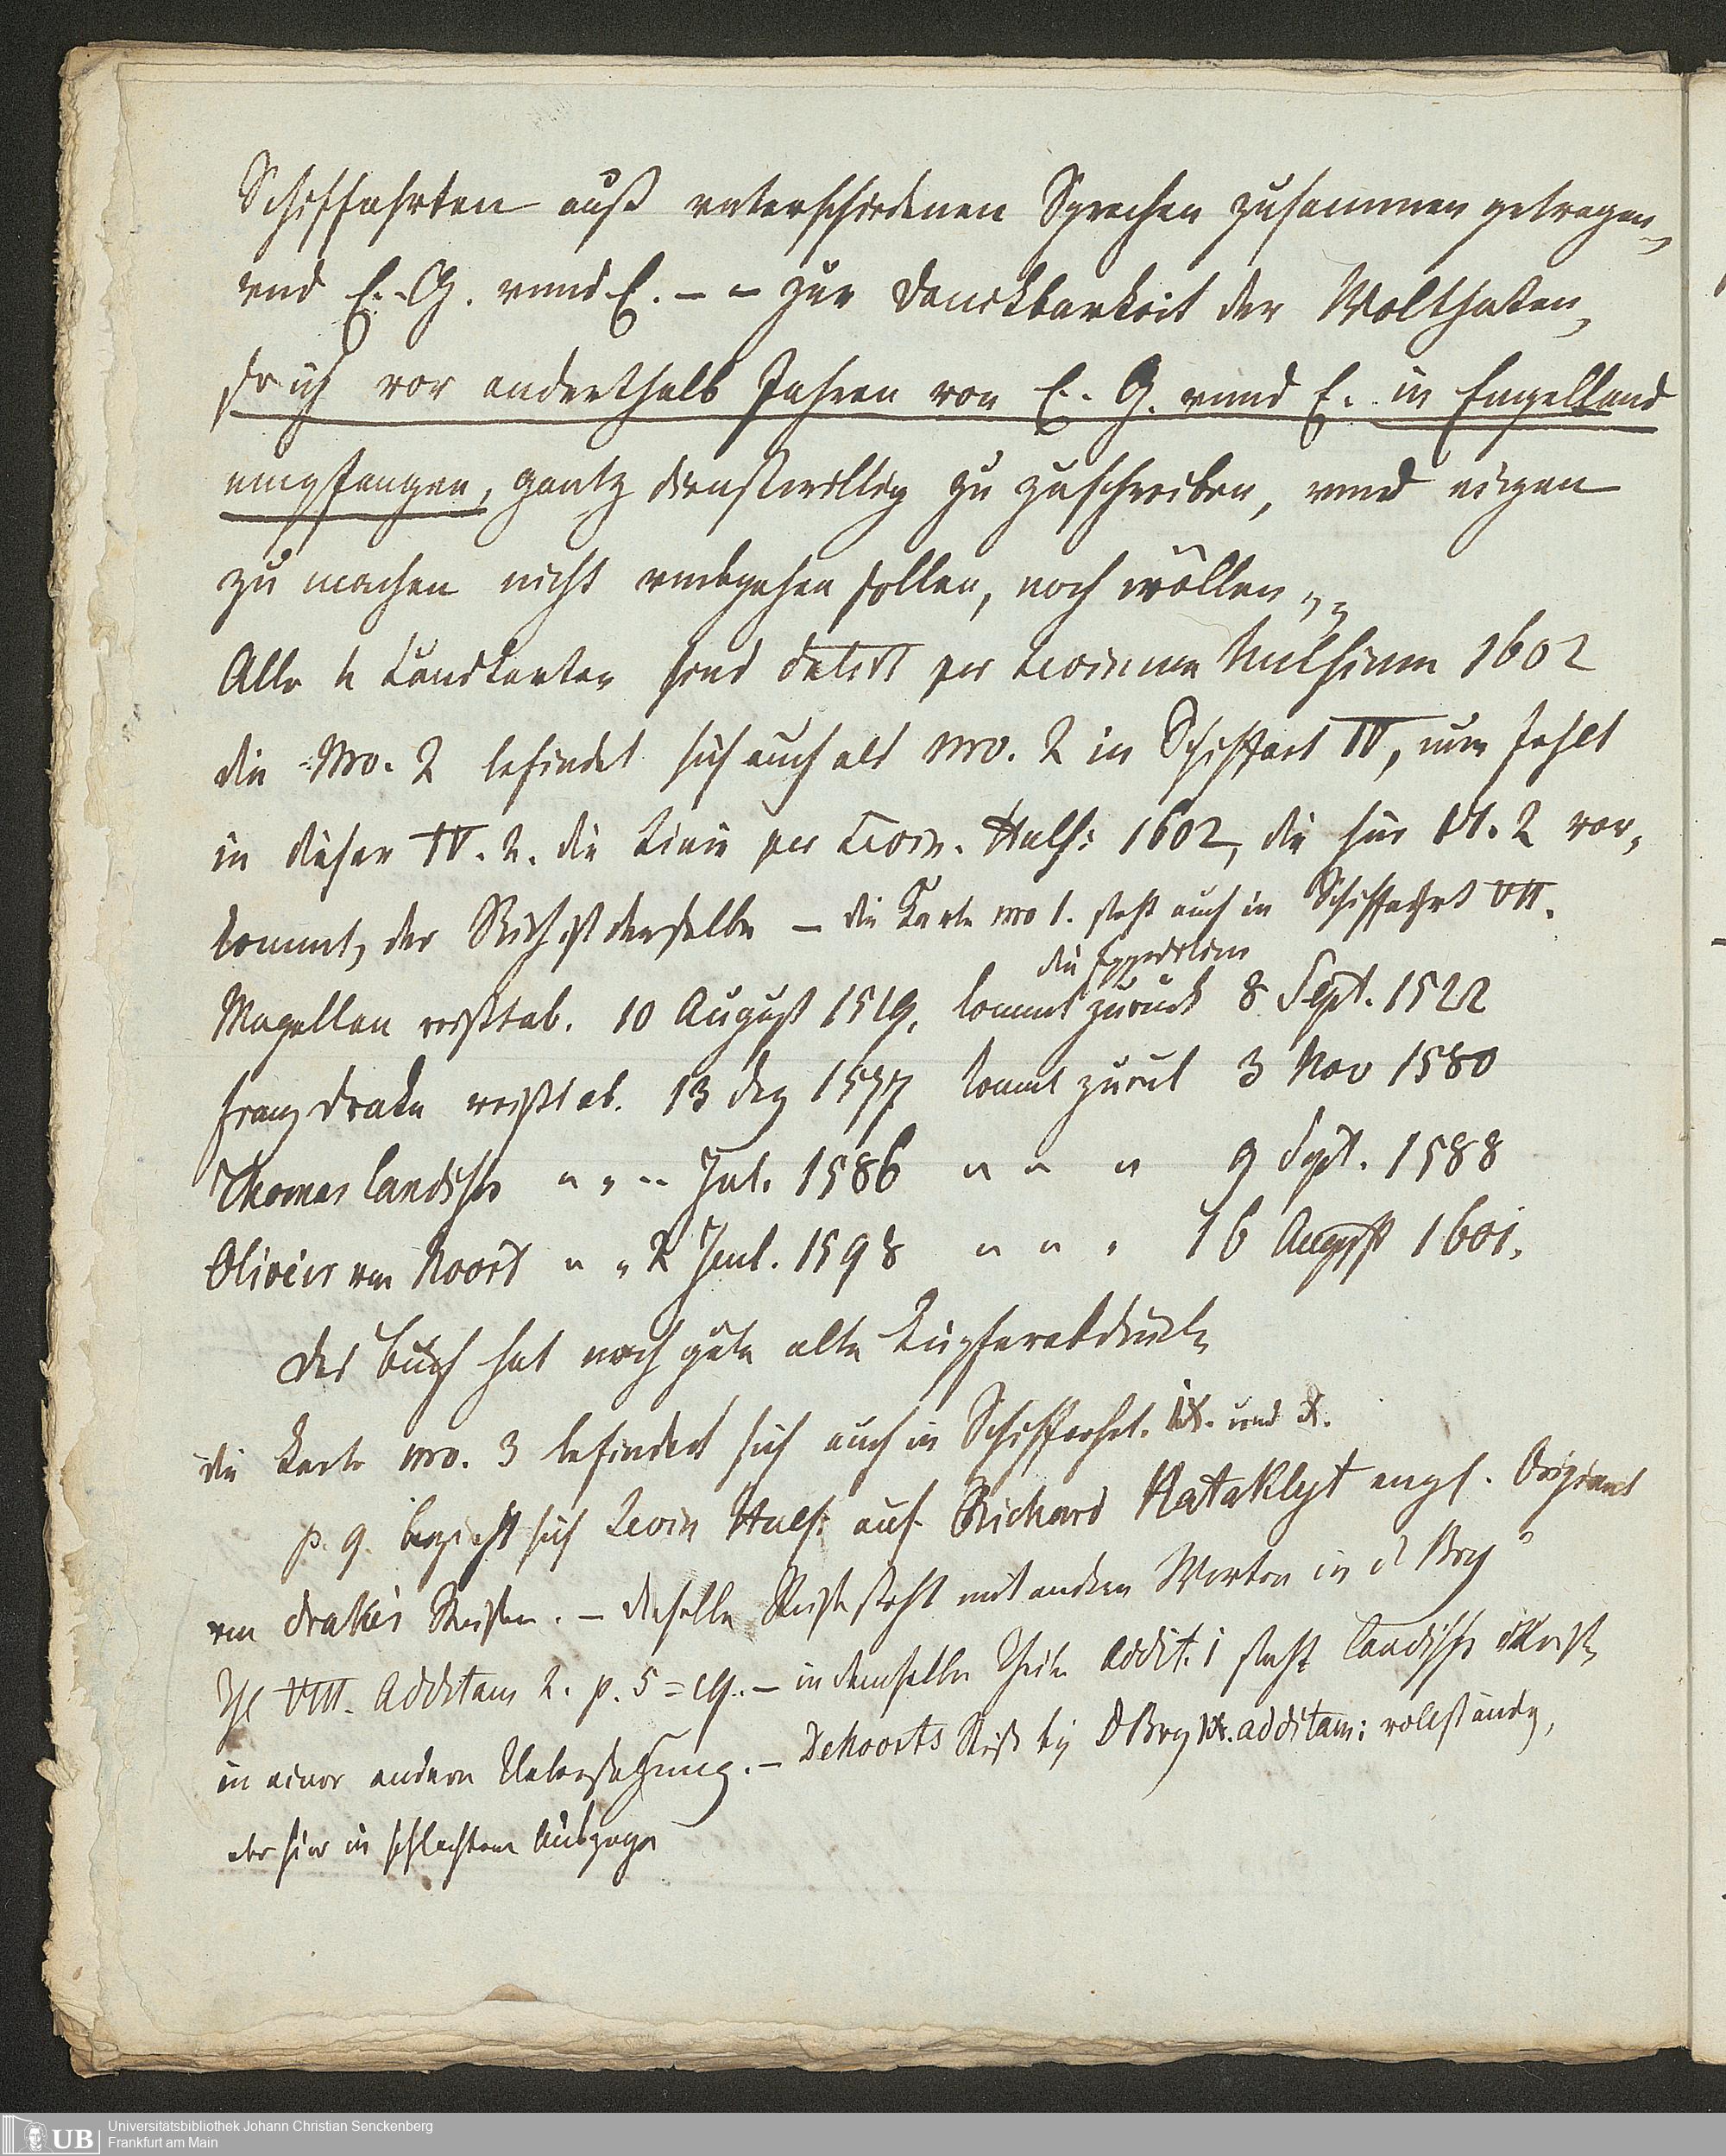 Schiffahrten auß vnterschiedenen Sprachen zusammen getragen,
vnd E. G. vnnd E. – – zur Danckbarkeit der Wolthaten,
so ich vor anderthalb Jahren von E. G. vnnd E. in Engelland
empfangen, gantz dienstwillig zu zuschreiben, vnnd eigen
zu machen nicht vmbgehen sollen, noch wöllen „ „
Alle 4 Landkarten sind datirt per Levinum Hulsium 1602
die Nro. 2 befindet sich auch als nro. 2 in Schiffart IV, nur fehlt
in dieser IV. 2. die Linie per Levin. Hulf: 1602, die hier VI. 2 vor-
kommt, der Stich ist derselbe – die Karte nro 1. steht auch in Schiffahrt VII.
die Expedition
Magellan reißt ab. 10 August 1519. kommt zurück 8 Sept. 1522
Franz Drake reißt ab. 13 Dez 1577 kommt zurück 3 Nov 1580
Thomas Candish " " -- Jul. 1586 " " " 9 Sept. 1588
Olivier van Noort " " 2 Jul. 1598 " " " 26 August 1601.
Das Buch hat noch gute alte Kupferabdrücke
die Karte nro. 3 befindet sich auch in Schiffarht. IX. und X.
p. 9. bezieht sich Levin Huls: auf Richard Hataklyt engl. Original
von Drake's Reisen. – dieselbe Reise steht mit andern Worten in d Bry
Thl VIII. Additam 2. p. 5 = – in demselben Theile addit. 1 steht Candish's Reise
in einer andern Uebersetzung. – DeNoorts Reise bey D Bry IX. additam: vollständig,
aber hier in schlechtem Auszuge